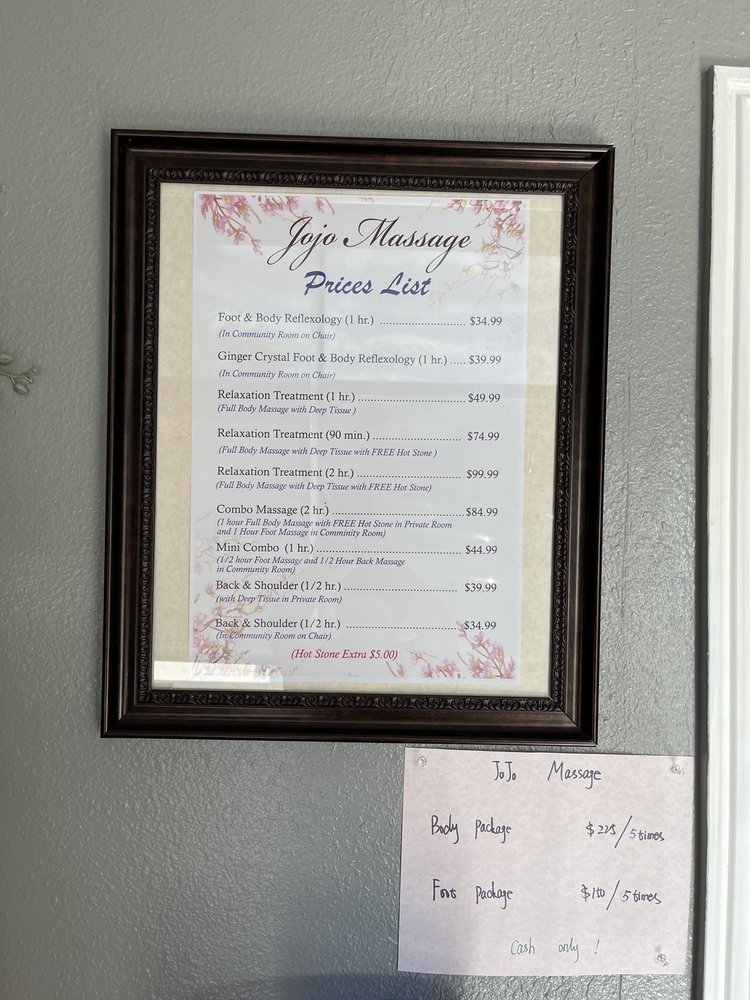 Jojo Massage
Prices List
Foot & Body Reflexology (1 hr.) ........................... $34.99
(In Community Room on Chair)
Ginger Crystal Foot & Body Reflexology (1 hr.) ..... $39.99
(In Community Room on Chair)
Relaxation Treatment (1 hr.) .................................. $49.99
(Full Body Massage with Deep Tissue )
Relaxation Treatment (90 min.) ........................... $74.99
(Full Body Massage with Deep Tissue with FREE Hot Stone )
Relaxation Treatment (2 hr.) .................................. $99.99
(Full Body Massage with Deep Tissue with FREE Hot Stone)
Combo Massage (2 hr.) .........................................$84.99
(1 hour Full Body Massage with FREE Hot Stone in Private Room
and 1 Hour Foot Massage in Comminity Room)
Mini Combo (1 hr.) .............................................. $44.99
(1/2 hour Foot Massage and 1/2 Hour Back Massage
in Community Room)
Back & Shoulder (1/2 hr.) .................................... $39.99
(with Deep Tissue in Private Room)
Back & Shoulder (1/2 hr.) .................................... $34.99
(In Community Room on Chair)
(Hot Stone Extra $5.00)
JoJo Massage
Body Package $225/5 times
Foot Package /5 times
Cash only !